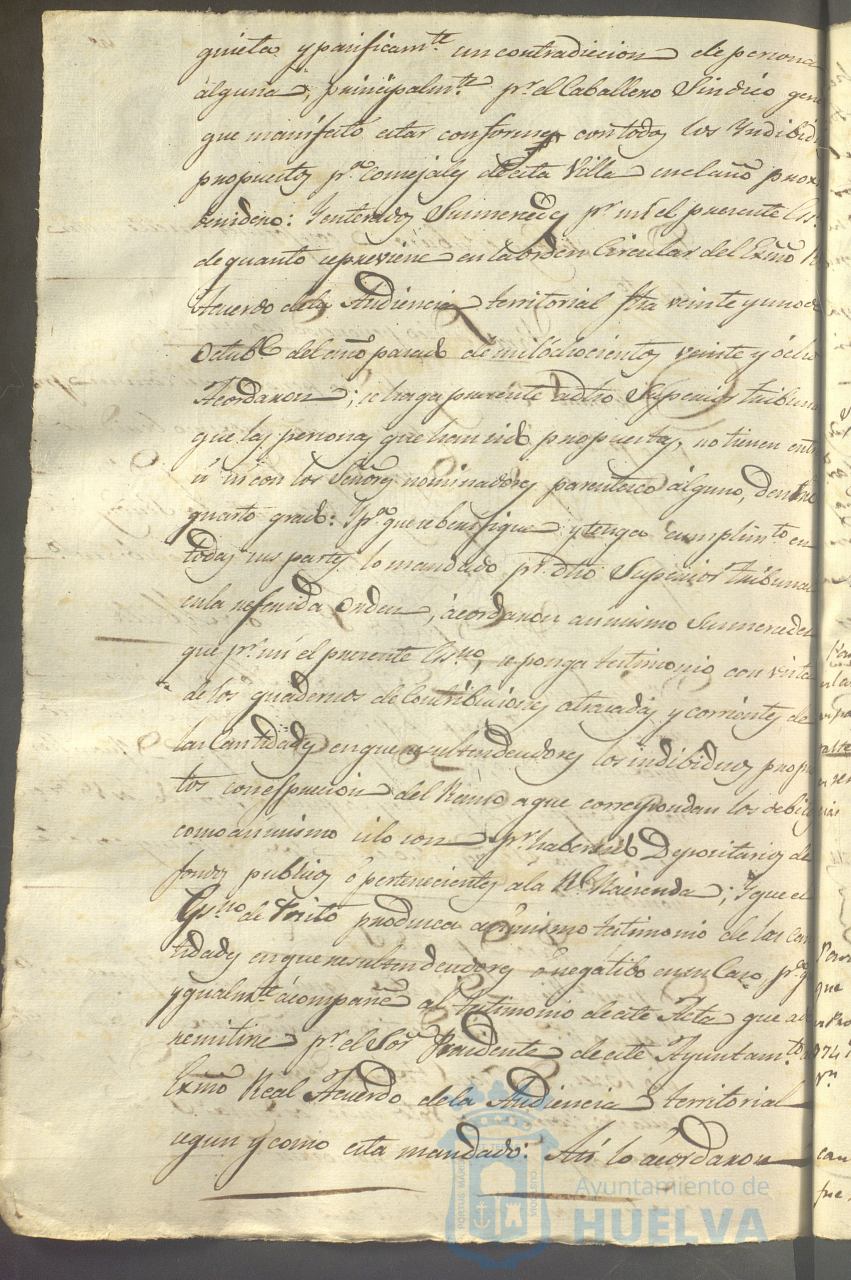 quieta y pacificam.te sin contradicion de persona
alguna, principalm.te p.r el Caballero Sindico gen
que manifestó estar conforme con todos los Yndibid
propuestos p.a Consejales de esta Villa en el año proxi
benidero: Yenterados Sus mercedes p.r mi el presente Es.
de quanto se previene en la orden Circular del Exmo R
Acuerdo de la Audiencia territorial fha veinte y uno de
Octubre del año pasado de mil ochocientos veinte y ocho
Acordaron; se haga presente a dho Superior tribuna
que las personas que han sido propuestas, no tienen entre
si ni con los Señores nominadores parentesco alguno, dentro
quarto grado: Y p.a que se berifique y tenga cumplim.to en
todas sus partes lo mandado p.r dho Superior tribunal
en la referida Orden, acordaron asimismo Sus mercedes
que p.r mi el presente Es.no, se ponga testimonio con vista
de los quadernos de Contribuciones atrasadas y corrientes de
las Cantidades en que resulten deudores los indibiduos propu
tos con espresion del Ramo a que correspondan los debitos
como asimismo si lo son p.r haber sido Depositarios de
fondos publicos ó pertenecientes á la R.l Hacienda; Y que el
Es.no de Posito produzca asimismo testimonio de las can
tidades en que resulten deudores ó negatibo en su Caso p.a q.
ygualm.te acompañe al testimonio de este Acta que a de
remitirse p.r el Sor Presidente de este Ayuntam.to al
Exmo Real Acuerdo de la Audiencia territorial
segun y como esta mandado: Asi lo acordaron
Ayuntamiento de
HUELVA